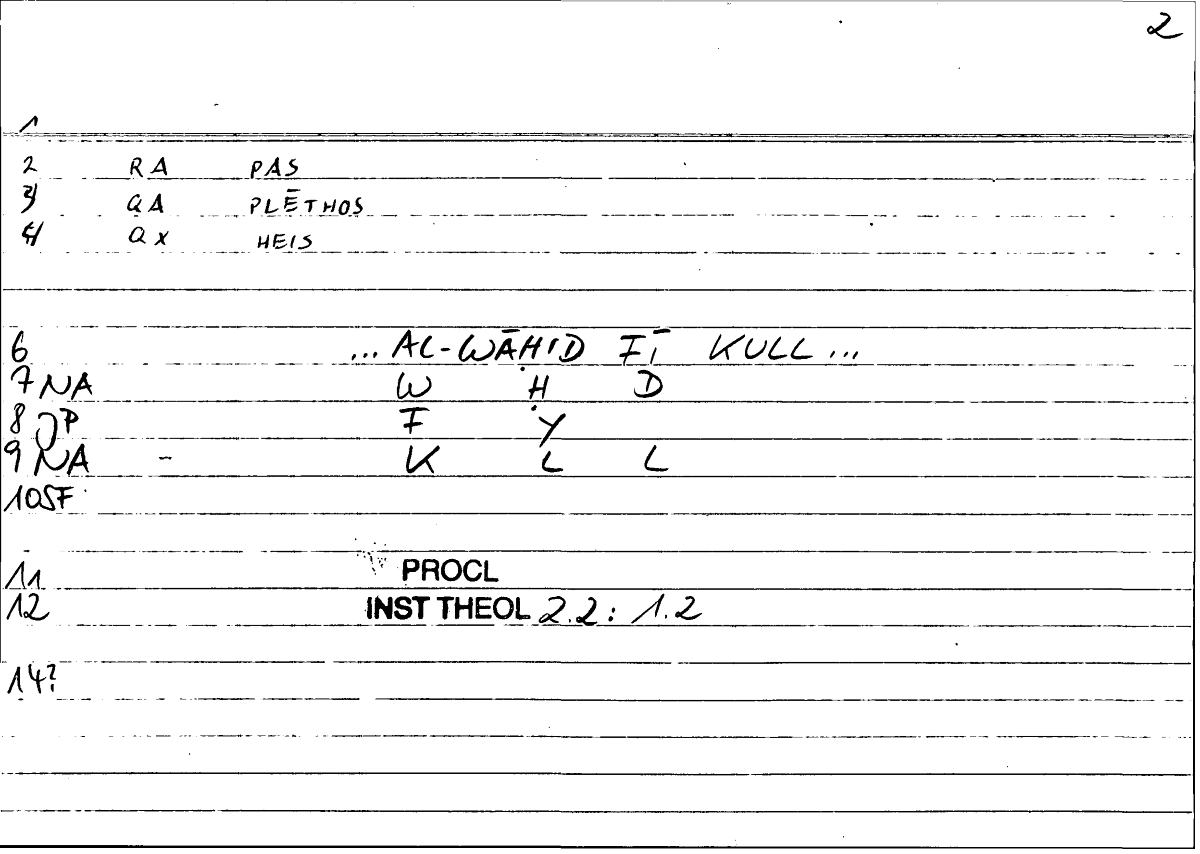 2
1
2 RA PAS
3 QA PLĒTHOS
4 QX HEIS
6 ... AL-WĀḤID FĪ KULL ...
7 NA W Ḥ D
8 OP F Y
9 NA - K L L
10 SF
11 PROCL
12 INST THEOL 2.2: 1.2
14?